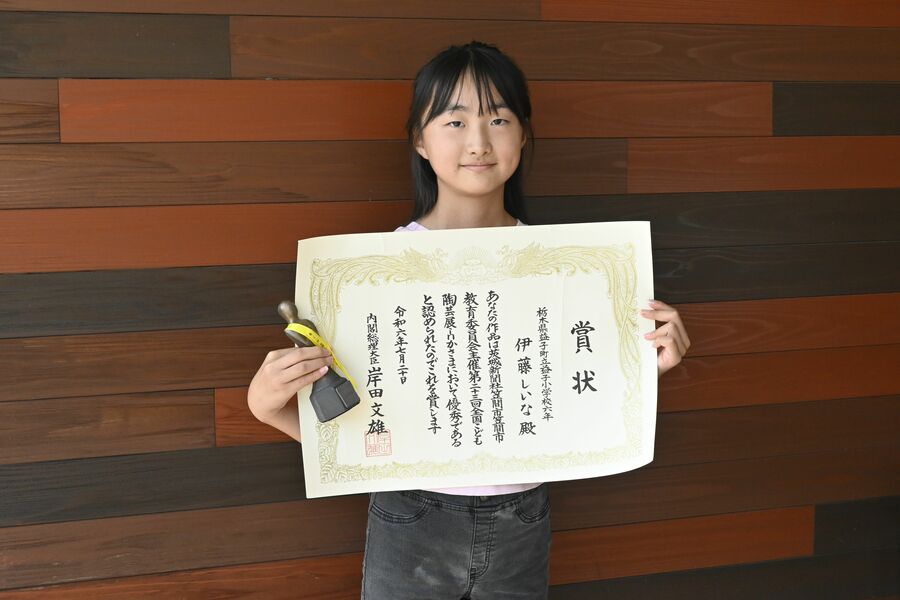 賞状
栃木県益子町立益子小学校六年
伊藤しいな 殿
あなたの作品は茨城新聞社笠間市笠間市
教育委員会主催第二十三回全国こども
陶芸展inかさまにおいて優秀である
と認められたのでこれを賞します
令和六年七月二十日
内閣総理大臣 岸田文雄